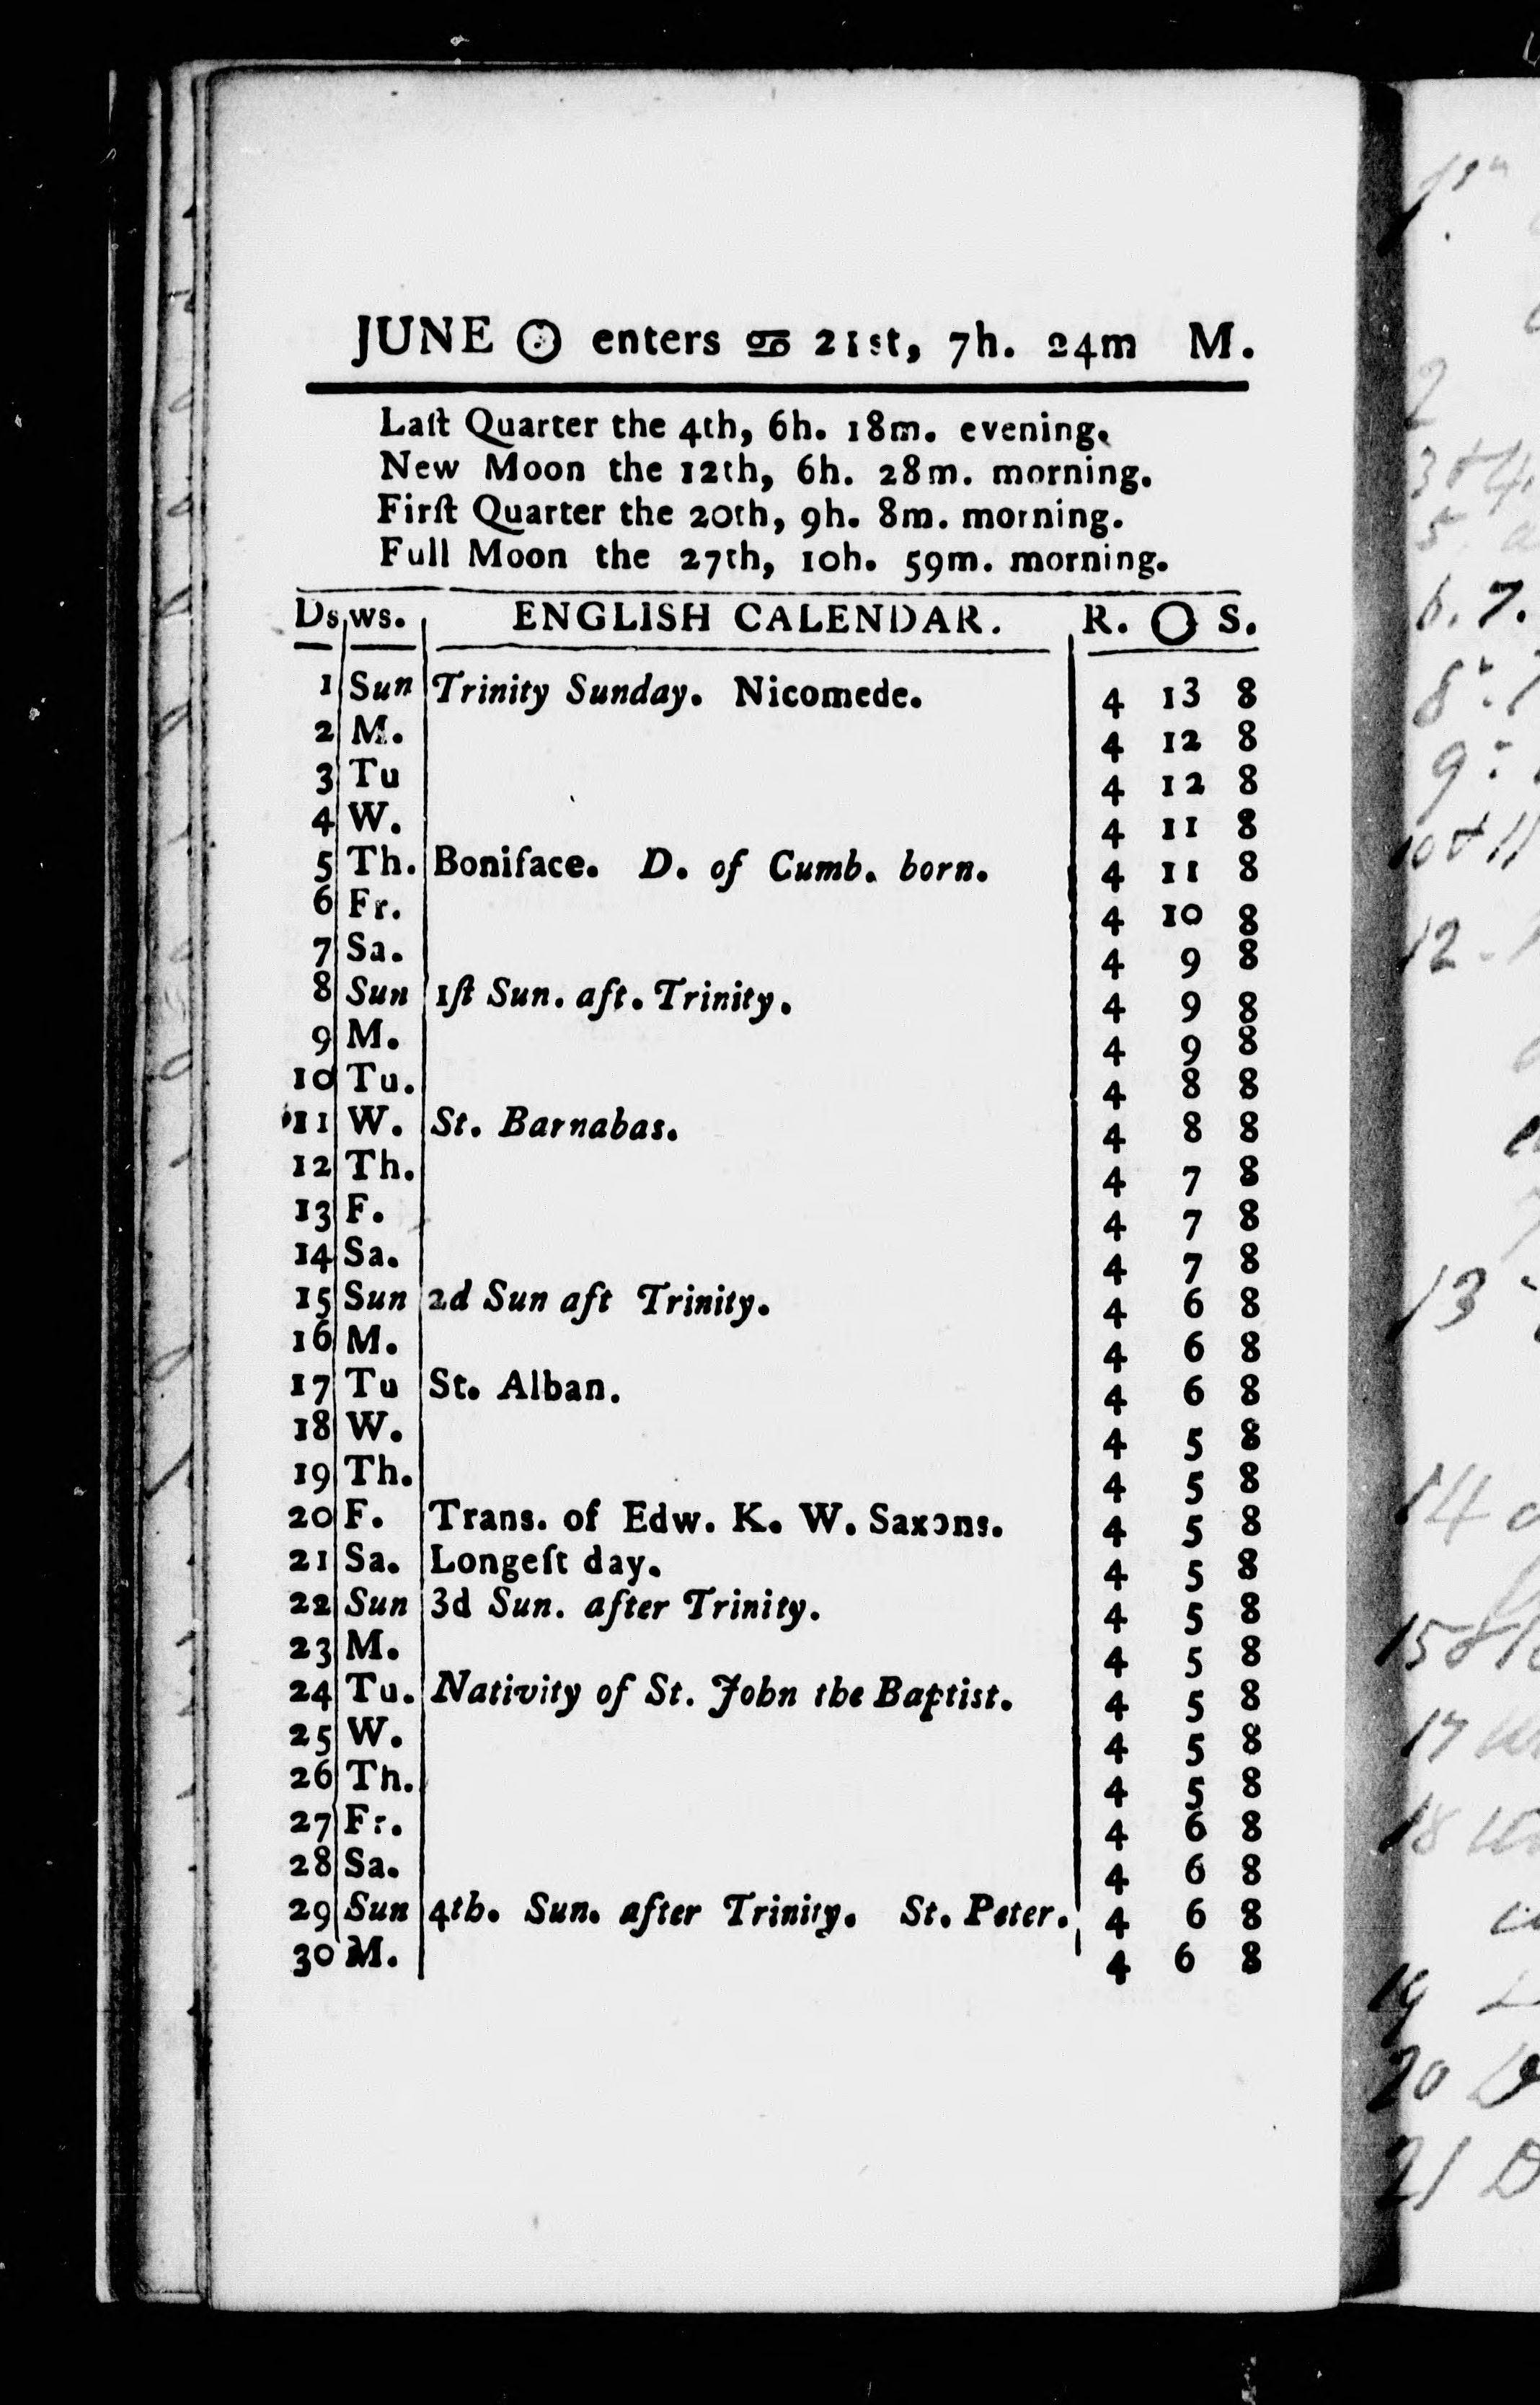 JUNE ☉ enters ♋ 21st, 7h. 24m M.
Laſt Quarter the 4th, 6h. 18m. evening.
New Moon the 12th, 6h. 28m. morning.
Firſt Quarter the 20th, 9h. 8m. morning.
Full Moon the 27th, 10h. 59m. morning.
Ds ws. ENGLISH CALENDAR. R. ☉ S.
1 Sun Trinity Sunday. Nicomede. 4 13 8
2 M. 4 12 8
3 Tu 4 12 8
4 W. 4 11 8
5 Th. Boniface. D. of Cumb. born. 4 11 8
6 Fr. 4 10 8
7 Sa. 4 9 8
8 Sun 1ſt Sun. aft. Trinity. 4 9 8
9 M. 4 9 8
10 Tu. 4 8 8
11 W. St. Barnabas. 4 8 8
12 Th. 4 7 8
13 F. 4 7 8
14 Sa. 4 7 8
15 Sun 2d Sun aft Trinity. 4 6 8
16 M. 4 6 8
17 Tu St. Alban. 4 6 8
18 W. 4 5 8
19 Th. 4 5 8
20 F. Trans. of Edw. K. W. Saxons. 4 5 8
21 Sa. Longeſt day. 4 5 8
22 Sun 3d Sun. after Trinity. 4 5 8
23 M. 4 5 8
24 Tu. Nativity of St. John the Baptist. 4 5 8
25 W. 4 5 8
26 Th. 4 5 8
27 Fr. 4 6 8
28 Sa. 4 6 8
29 Sun 4th. Sun. after Trinity. St. Peter. 4 6 8
30 M. 4 6 8
2
5
6. 7.
9
12
13
14
17
18
19
20
21